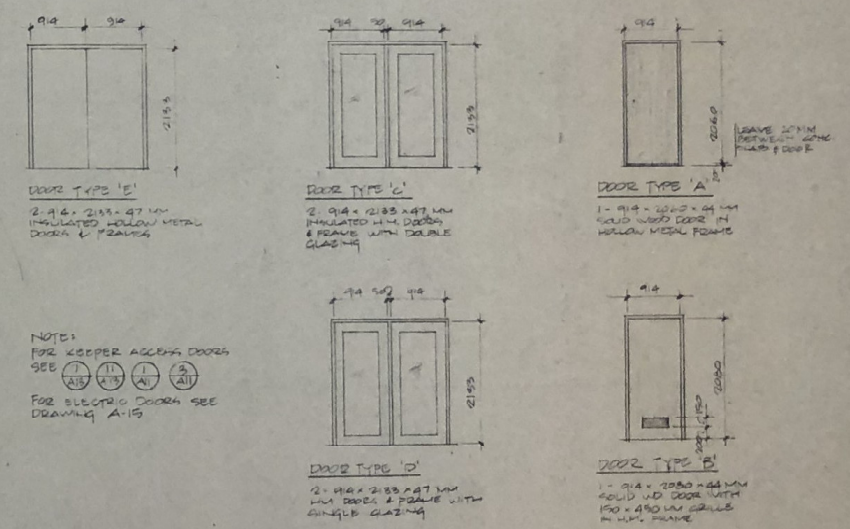 914 914
2133
DOOR TYPE 'E'
2- 914 × 2133 × 47 MM
INSULATED HOLLOW METAL
DOORS & FRAMES
914 50 914
2133
DOOR TYPE 'C'
2- 914 × 2133 × 47 MM
INSULATED H.M. DOORS
& FRAME WITH DOUBLE
GLAZING
914
2060
20
LEAVE 20MM
BETWEEN CONC.
SLAB & DOOR
DOOR TYPE 'A'
1- 914 × 2060 × 44 MM
SOLID WOOD DOOR IN
HOLLOW METAL FRAME
NOTE:
FOR KEEPER ACCESS DOORS
SEE 7 A13 11 A13 1 A11 3 A11
FOR ELECTRIC DOORS SEE
DRAWING A-15
914 50 914
2133
DOOR TYPE 'D'
2- 914 × 2133 × 47 MM
HM DOORS & FRAME WITH
SINGLE GLAZING
914
2080
150
200
DOOR TYPE 'B'
1- 914 × 2080 × 44 MM
SOLID WD DOOR WITH
150 × 450 MM GRILLE
IN H.M. FRAME